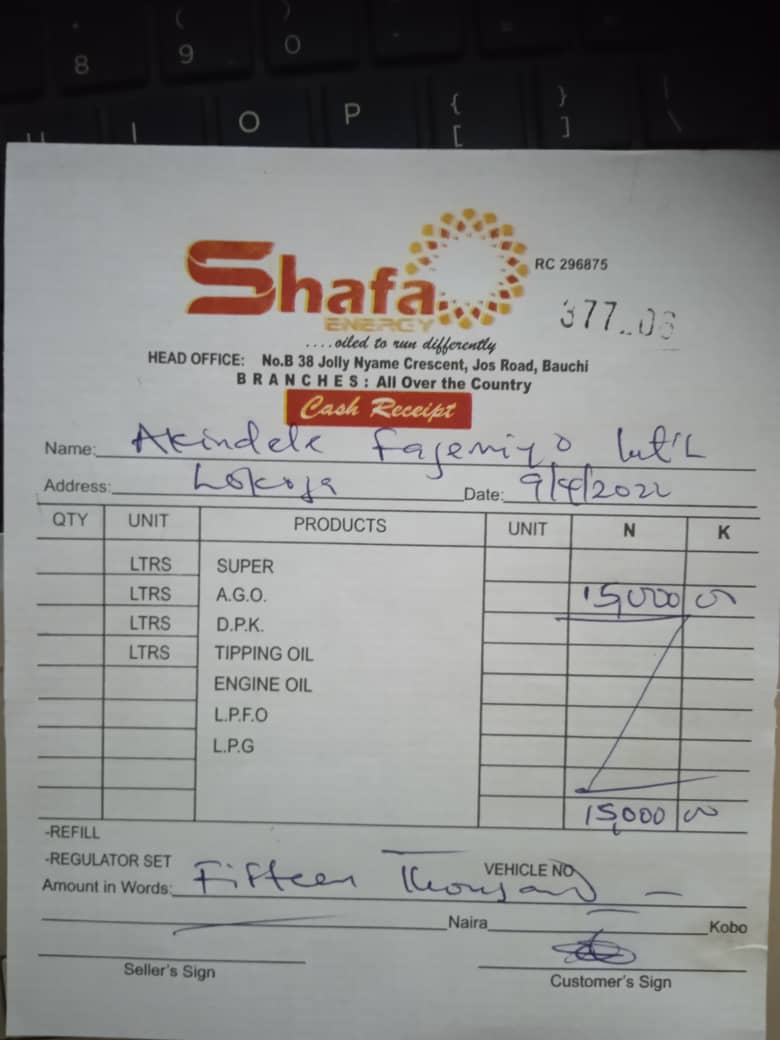 8 ( 9 ) 0
U I O P { [ } ] | \
Shafa
ENERGY
RC 296875
377..06
....oiled to run differently
HEAD OFFICE: No.B 38 Jolly Nyame Crescent, Jos Road, Bauchi
BRANCHES: All Over the Country
Cash Receipt
Name: Akindele Fajemiyo Int'L
Address: Lokoja Date: 9/4/2022
QTY UNIT PRODUCTS UNIT N K
LTRS SUPER
LTRS A.G.O. 15,000 00
LTRS D.P.K.
LTRS TIPPING OIL
ENGINE OIL
L.P.F.O
L.P.G
15,000 00
-REFILL
-REGULATOR SET VEHICLE NO
Amount in Words: Fifteen Thousand
Naira Kobo
Seller's Sign Customer's Sign